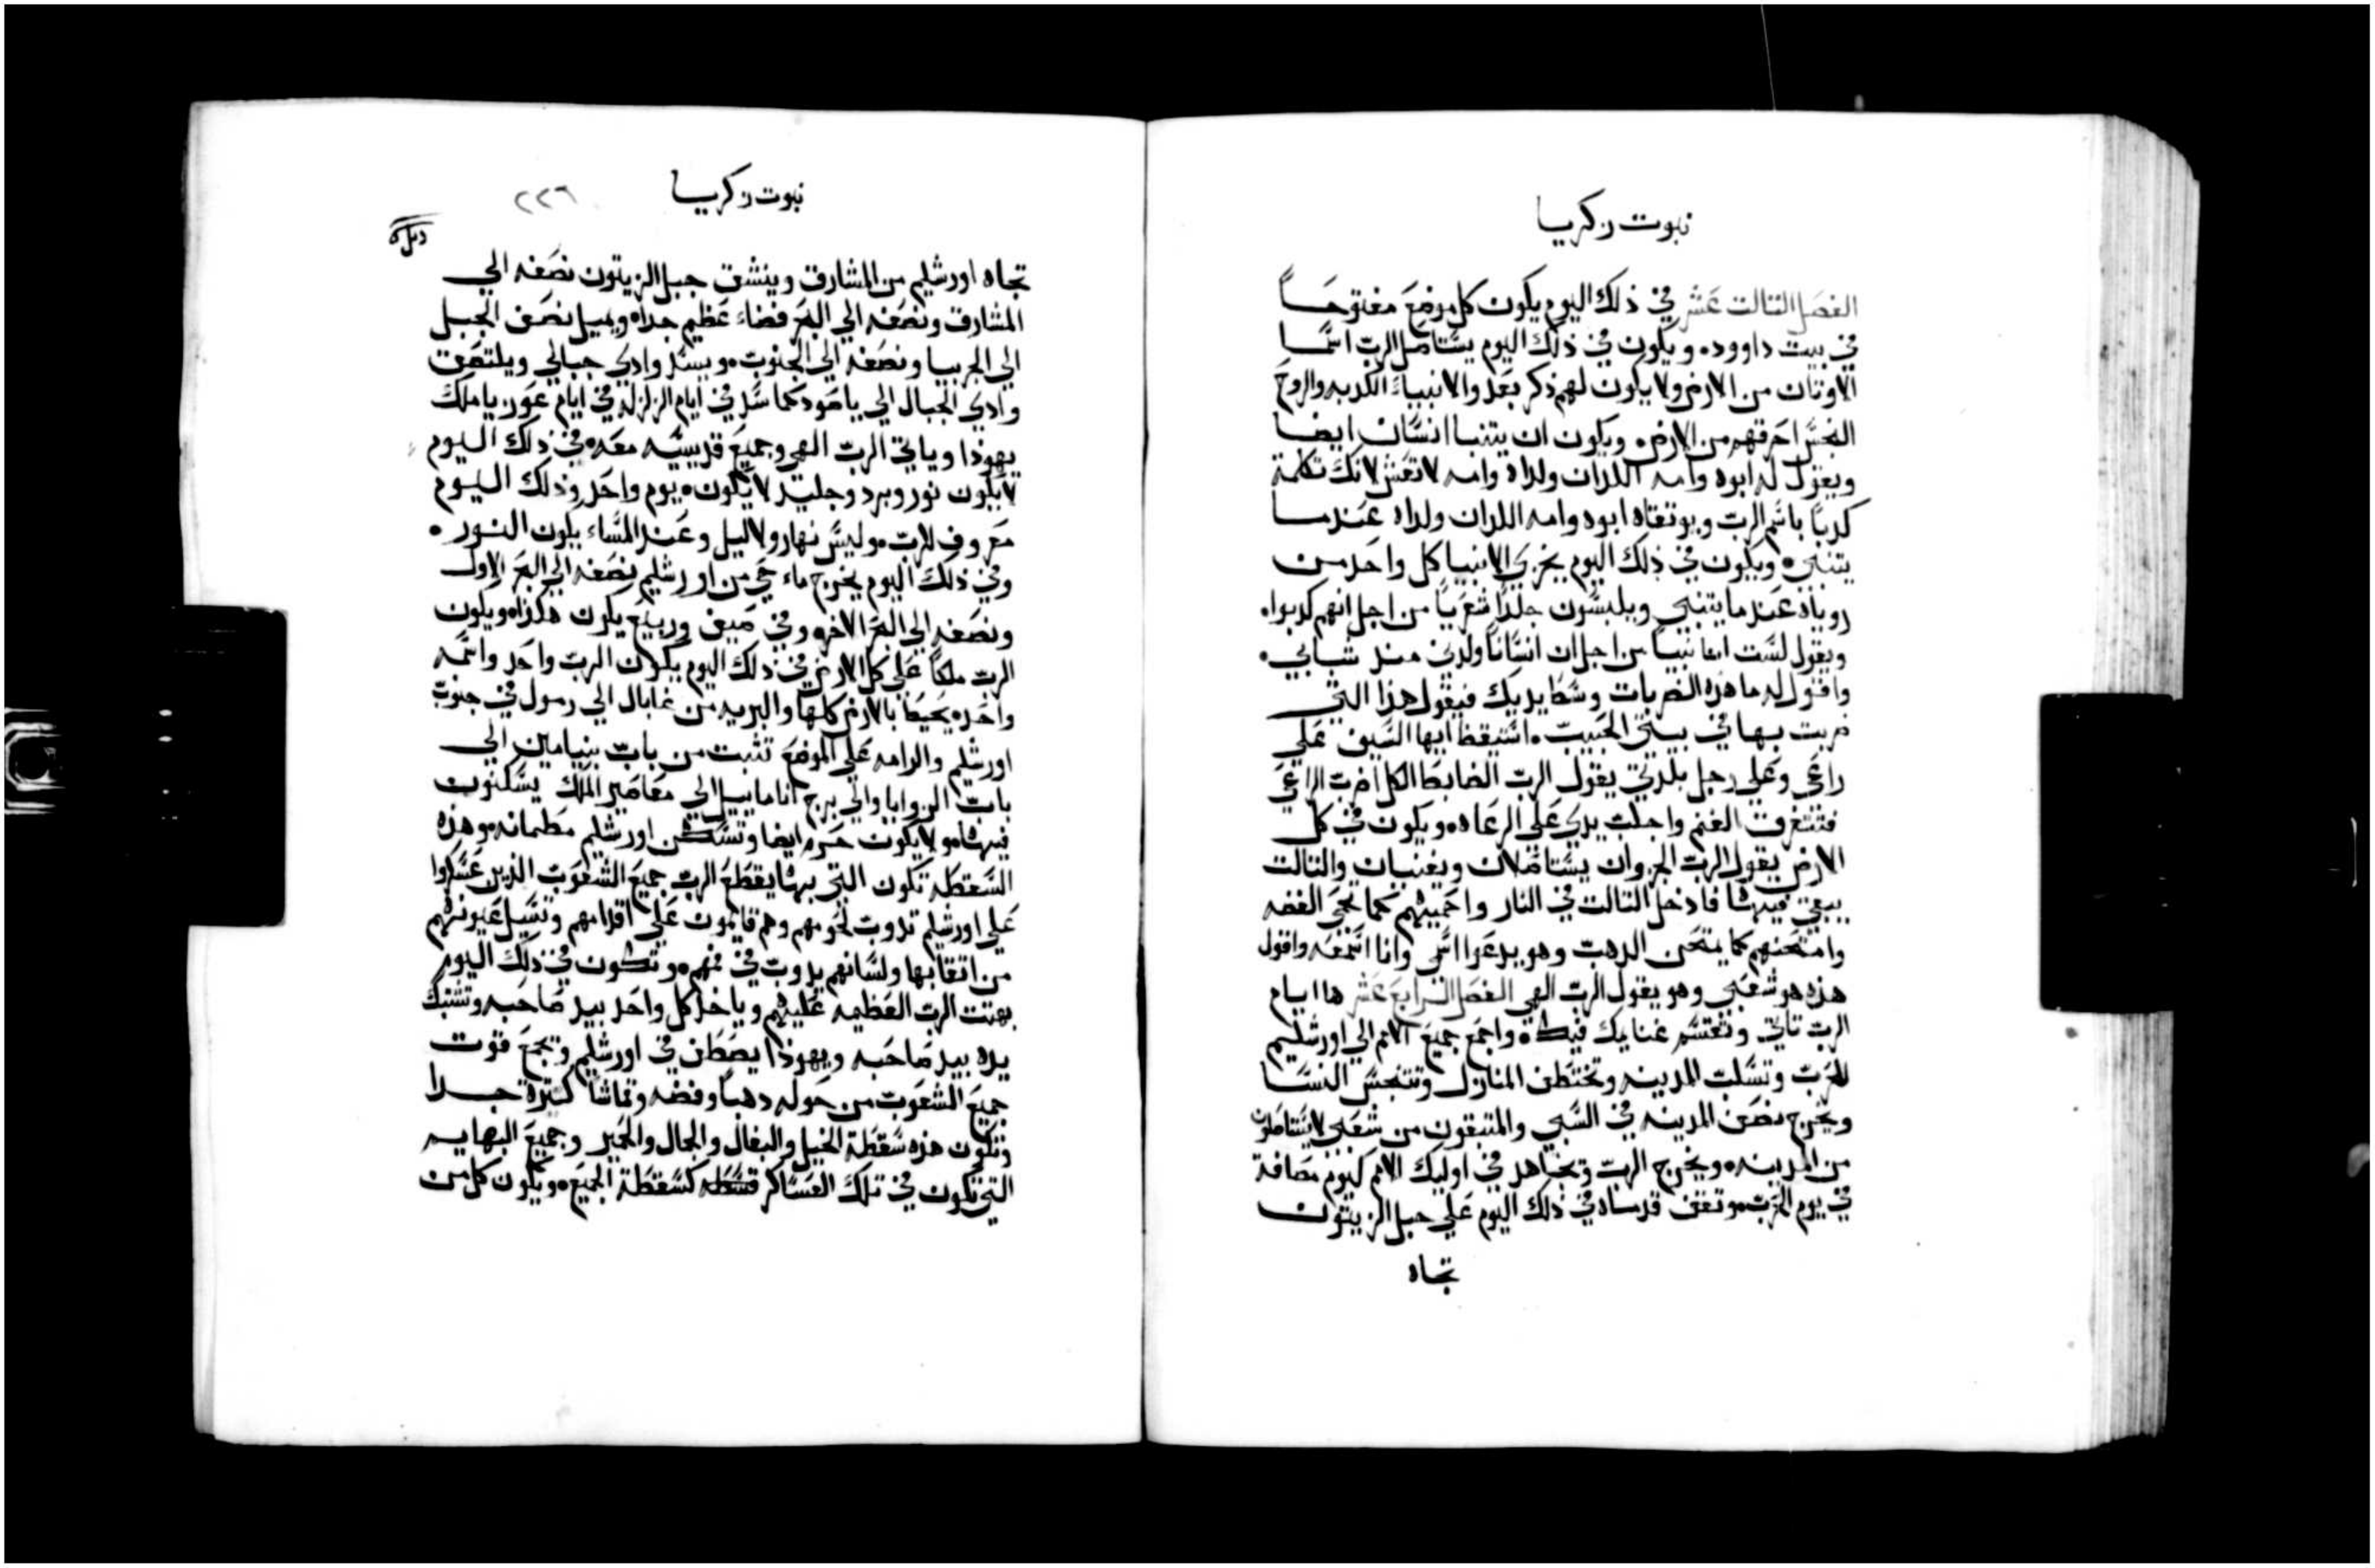 نبوت زكريا
الفصل التالت عشر في ذلك اليوم يكون كل موضع مفتوحا
في بيت داوود. ويكون في ذلك اليوم يستاصل الرب اسما
الاوتان من الارض ولا يكون لهم ذكر بعد والانبياء الكدبه والروح
النجس احرقهم من الارض. ويكون ان يتنبا انسان ايضا
ويقول له ابوه وامه اللدان ولداه وامه لا تعش لانك تكلمة
كدبا باسم الرب ويوتقاه ابوه وامه اللدان ولداه عندما
يتنبي. ويكون في ذلك اليوم يخزي الانبيا كل واحد من
روياه عندما يتنبي ويلبسون جلدا شعريا من اجل انهم كدبوا.
ويقول لست انا نبيا من اجل ان انسانا ولدني مند شبابي.
واقول له ما هده الضربات وسط يديك فيقول هدا التي
ضربت بها في بيتي الحبيب. استيقظ ايها السيف علي
راعي وعلي رجل بلدتي يقول الرب الضابط الكل اضرب الراعي
فتتفرق الغنم واجلب يدي علي الرعاه. ويكون في كل
الارض يقول الرب الجروان يستاصلان ويفنيان والتالت
يبقي فيها فادخل التالت في النار واحميهم كما تحمي الفضه
وامتحنهم كما يمتحن الدهب وهو يدعوا اسمي وانا اسمعه واقول
هده هو شعبي وهو يقول الرب الهي الفصل الرابع عشر ها ايام
الرب تاتي وتقتسم غنايمك فيك. واجمع جميع الامم الي اورشليم
للحرب وتسلب المدينه وتختطف المنازل وتتنجس النسا
ويخرج نصف المدينه في السبي والمتبقون من شعبي لا يستاصلون
من المدينه. ويخرج الرب وتجاهد في اوليك الامم كيوم مصافة
في يوم الحرب. وتقف قدماه في ذلك اليوم علي جبل الزيتون
تجاه
نبوت زكريا ٢٢٦
تجاه اورشليم من المشارق وينشق جبل الزيتون نصفه الي
المشارق ونصفه الي البحر فضاء عظيم جدا. ويميل نصف الجبل
الي الجربيا ونصفه الي الجنوب. ويسد وادي جبالي ويلتصق
وادي الجبال الي ياصود كما سد في ايام الزلزله في ايام عوزيا ملك
يهوذا وياتي الرب الهي وجميع قديسيه معه. في ذلك اليوم
لا يكون نور وبرد وجليد لا يكون. يوم واحد وذلك اليوم
معروف للرب. وليس نهار ولا ليل وعند المساء يكون النور.
وفي ذلك اليوم يخرج ماء حي من اورشليم نصفه الي البحر الاول
ونصفه الي البحر الاخر. وفي صيف وربيع يكون هكذا. ويكون
الرب ملكا علي كل الارض في ذلك اليوم يكون الرب واحد واسمه
واحد. يحيط بالارض كلها والبريه من غابال الي رمول في جنوب
اورشليم والرامه علي الموضع تثبت من باب بنيامين الي
باب الزوايا والي برج اناماييل الي معاصير الملك يسكنون
فيها. ولا يكون حرم ايضا وتسكن اورشليم مطمانه. وهذه
السقطه تكون التي بها يقطع الرب جميع الشعوب الذين عسكروا
علي اورشليم تدوب لحومهم وهم قايمون علي اقدامهم وتسيل عيونهم
من اتقابها ولسانهم يدوب في فمهم. وتكون في ذلك اليوم
بهتت الرب العظيمه عليهم وياخد كل واحد بيد صاحبه وتشتبك
يده بيد صاحبه ويهوذا يصطف في اورشليم وتجمع قوت
جميع الشعوب من حوله دهبا وفضه وقماشا كتيرة جدا
وتكون هذه سقطة الخيل والبغال والجمال والحمير وجميع البهايم
التي تكون في تلك العساكر كسقطة الجميع. ويكون كل من